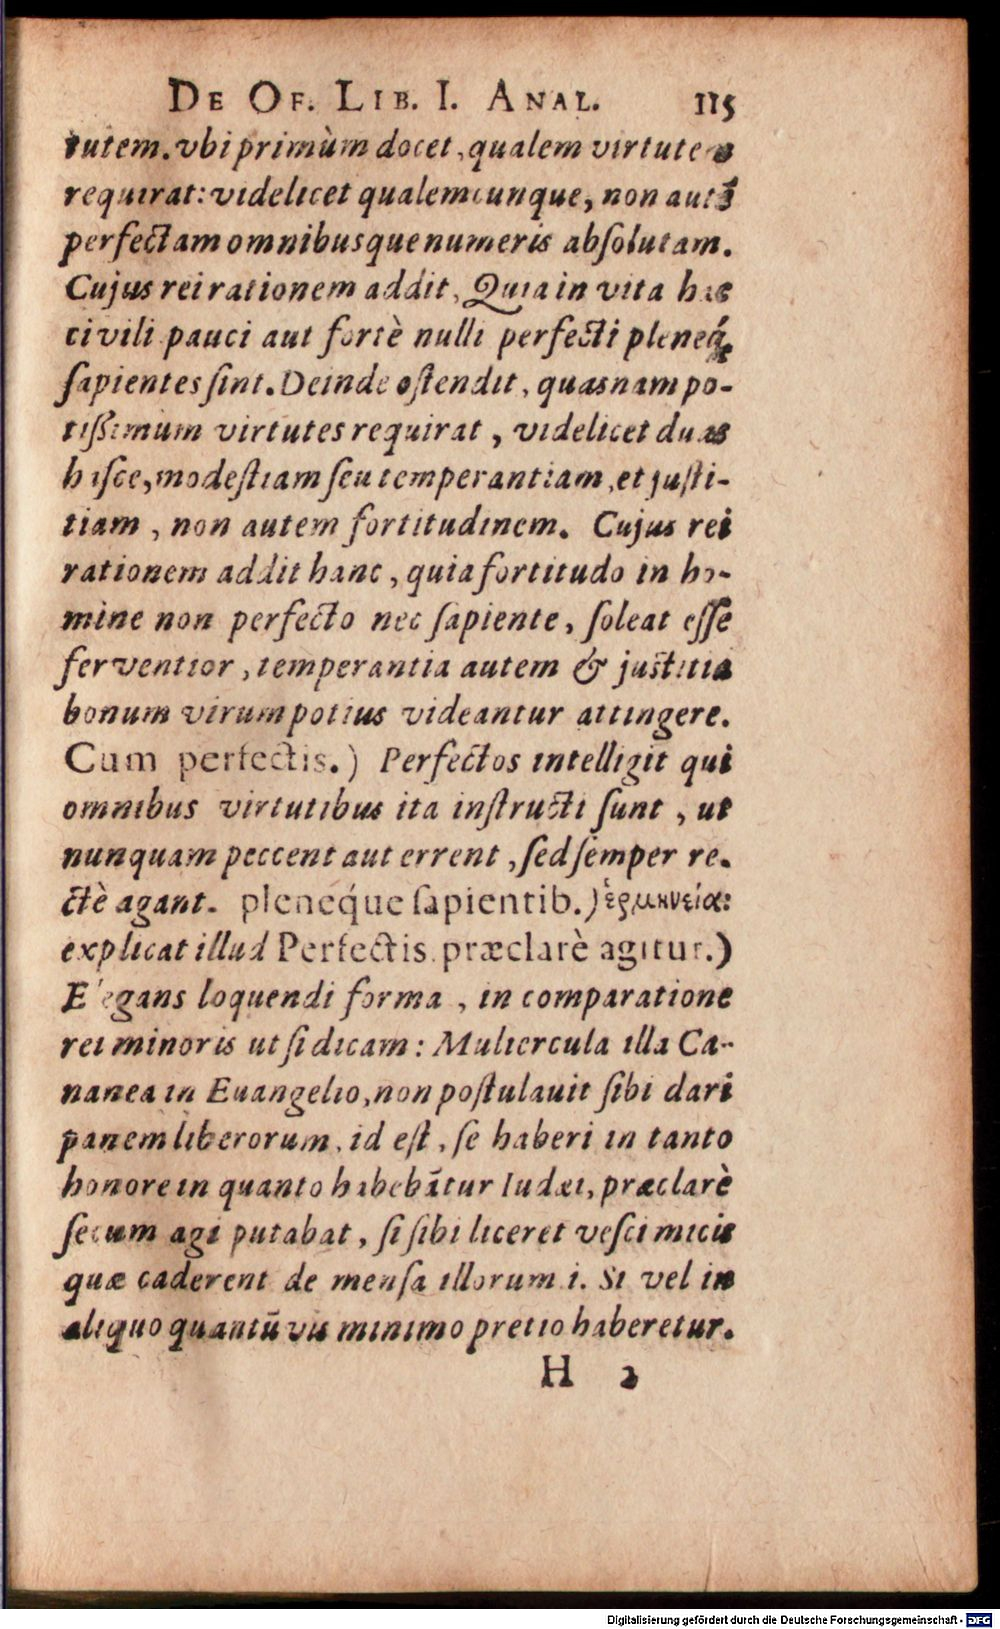 DE OF. LIB. I. ANAL. 115
tutem. vbi primùm docet, qualem virtutem
requirat: videlicet qualemcunque, non autẽ
perfectam omnibusque numeris absolutam.
Cujus rei rationem addit, Quia in vita hac
civili pauci aut fortè nulli perfecti pleneq́;
sapientes sint. Deinde ostendit, quasnam po-
tißimum virtutes requirat, videlicet duas
hisce, modestiam seu temperantiam, et justi-
tiam, non autem fortitudinem. Cujus rei
rationem addit hanc, quia fortitudo in ho-
mine non perfecto nec sapiente, soleat esse
ferventior, temperantia autem & justitia
bonum virum potius videantur attingere.
Cum perfectis.) Perfectos intelligit qui
omnibus virtutibus ita instructi sunt, ut
nunquam peccent aut errent, sed semper re-
ctè agant. pleneq́ue sapientib.) ἑρμηνεία:
explicat illud Perfectis. præclarè agitur.)
Elegans loquendi forma, in comparatione
rei minoris ut si dicam: Muliercula illa Ca-
nanea in Euangelio, non postulauit sibi dari
panem liberorum, id est, se haberi in tanto
honore in quanto habebãtur Iudæi, præclarè
secum agi putabat, si sibi liceret vesci micis
quæ caderent de mensa illorum i. Si vel in
aliquo quantũ vis minimo pretio haberetur.
H 2
Digitalisierung gefördert durch die Deutsche Forschungsgemeinschaft - DFG